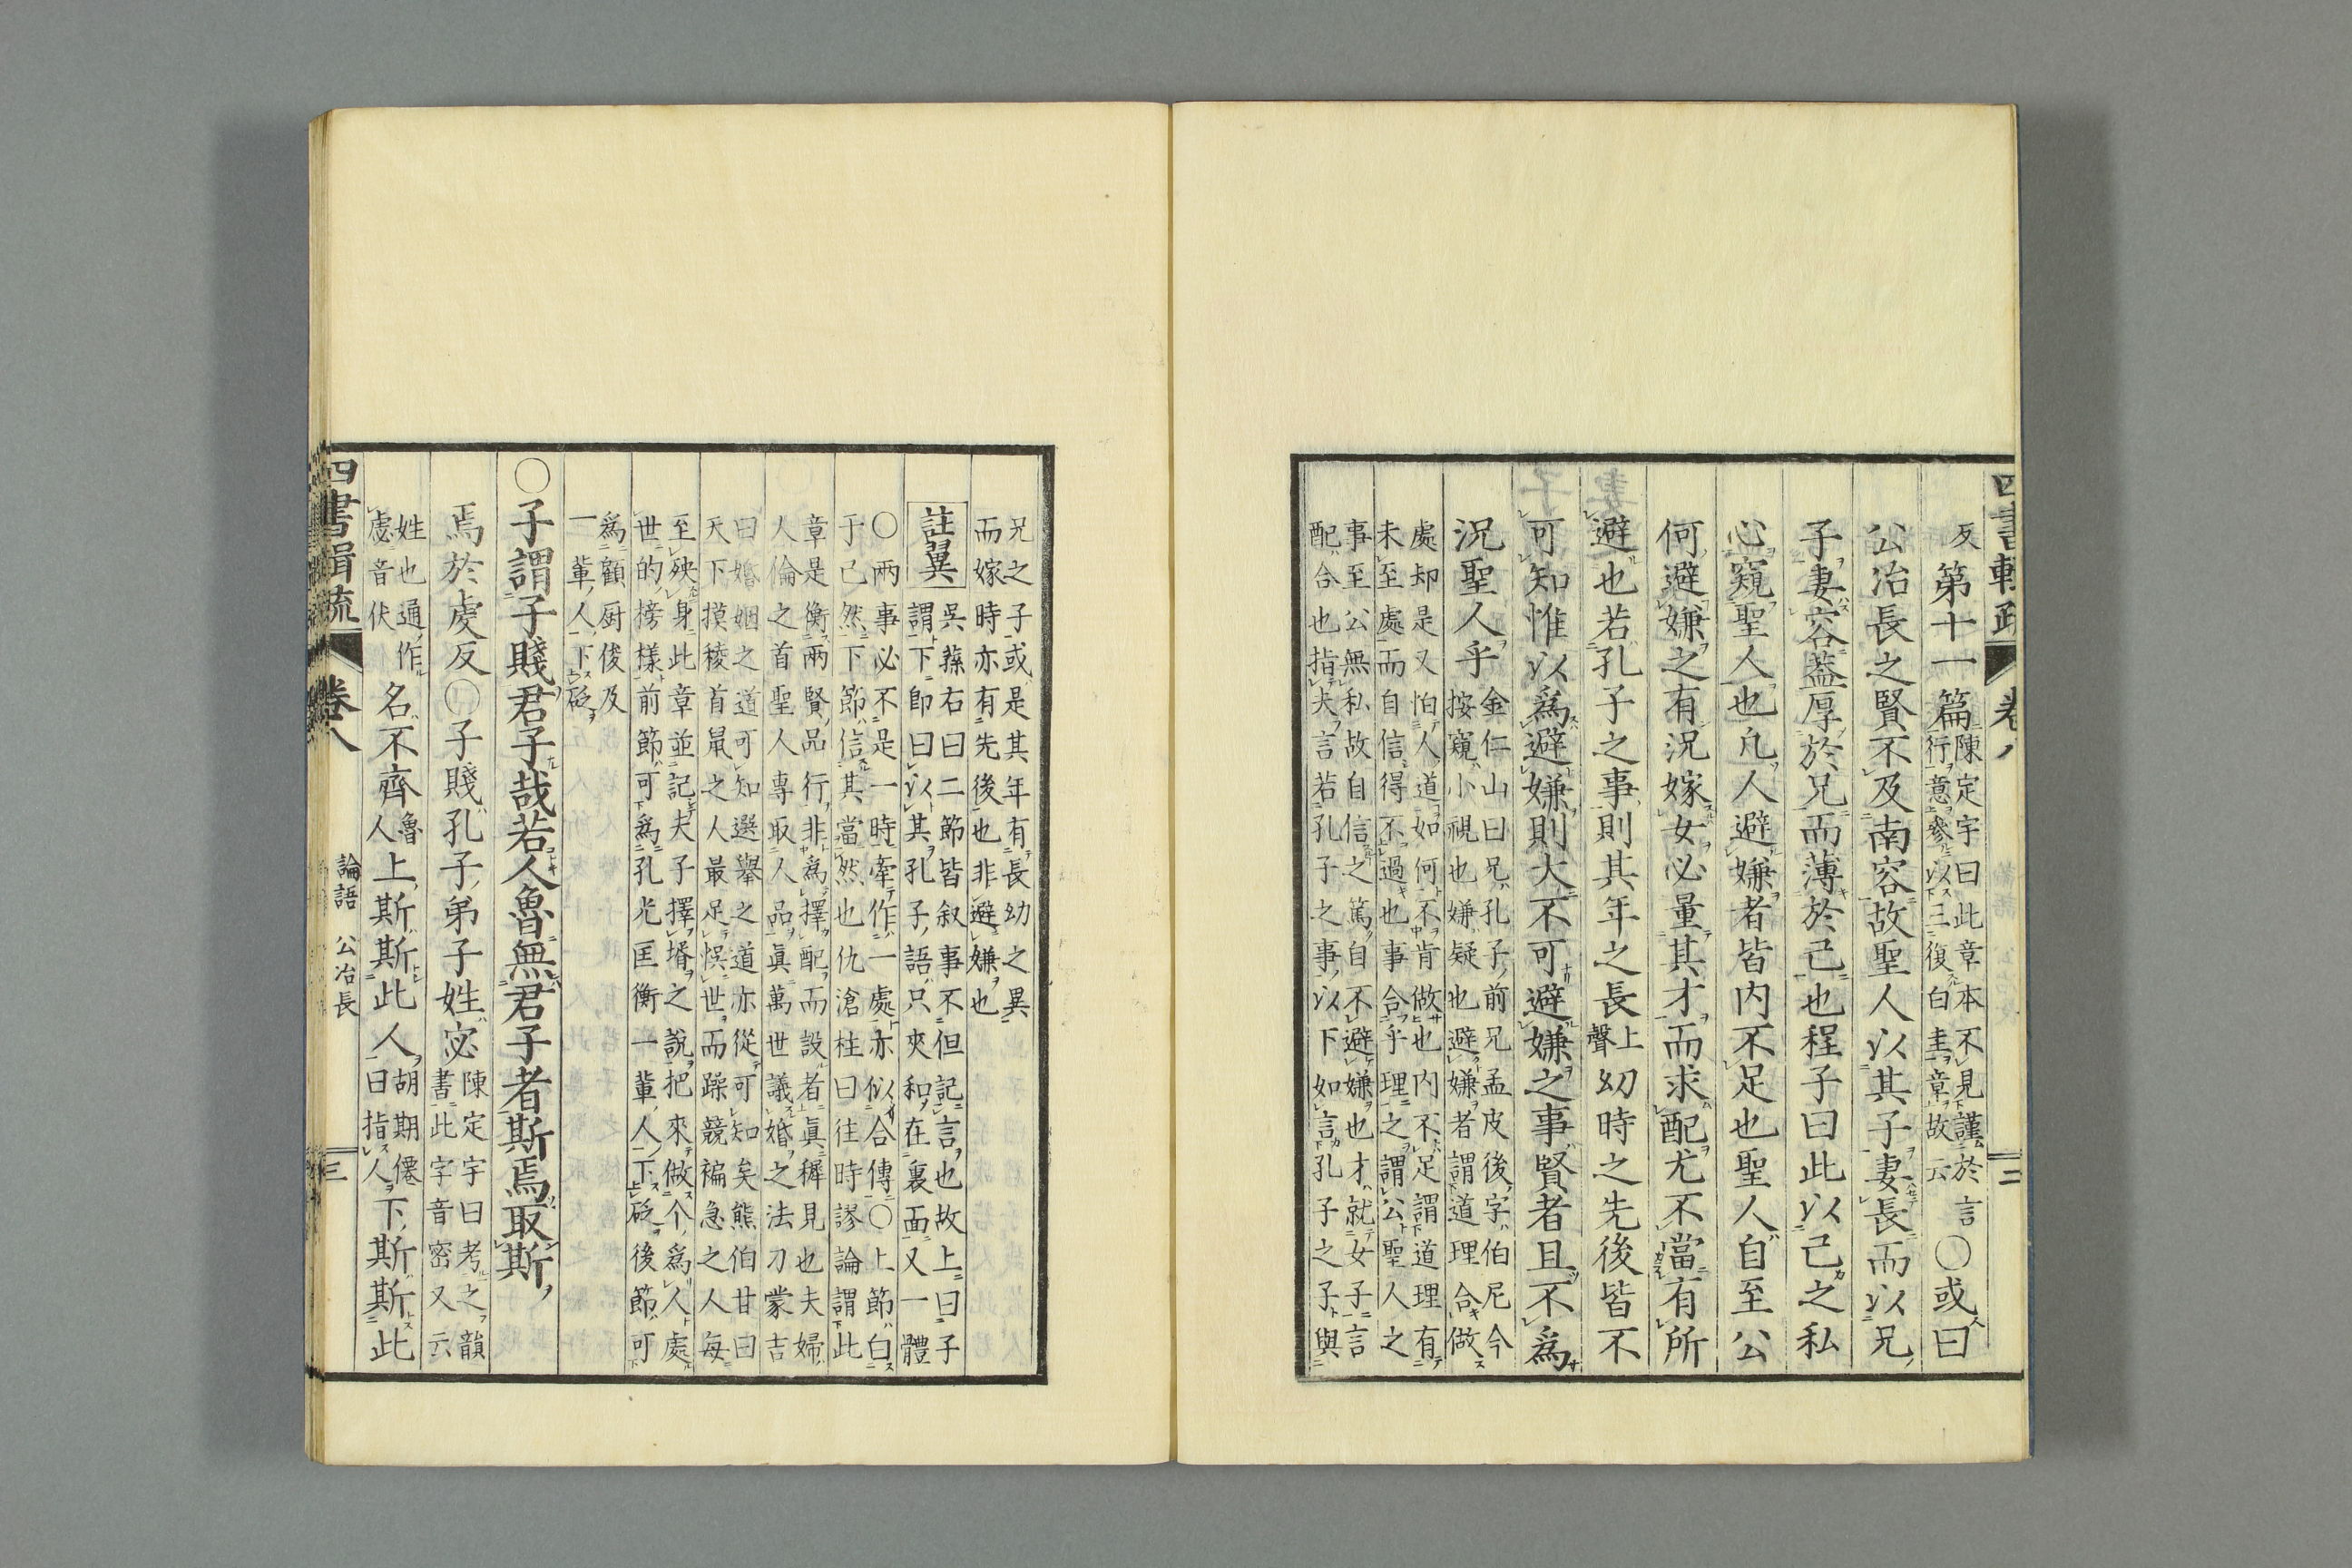 四書輯疏
卷八
二
反第十一篇陳定宇曰此章本不見謹於言
行意參以三復白圭章故云○或曰
公冶長之賢不及南容故聖人以其子妻長而以兄
子妻容蓋厚於兄而薄於己也程子曰此以己之私
心窺聖人也凡人避嫌者皆内不足也聖人自至公
何避嫌之有況嫁女必量其才而求配尤不當有所
避也若孔子之事則其年之長上聲幼時之先後皆不
可知惟以為避嫌則大不可避嫌之事賢者且不為
況聖人乎金仁山曰兄孔子前兄孟皮後字伯尼今
按窺小視也嫌疑也避嫌者謂道理合做
處却是又怕人道如何不肯做也内不足謂道理有
未至處而自信得不過也事合乎理之謂公聖人之
事至公無私故自信之篤自不避嫌也才就女子言
配合也指夫言若孔子之事以下如言孔子之子與
兄之子或是其年有長幼之異
而嫁時亦有先後也非避嫌也
註翼
吳蓀右曰二節皆叙事不但記言也故上曰子
謂下卽曰以其孔子語只夾和在裏面又一體
○兩事必不是一時牽作一處亦似合傳○上節白
于已然下節信其當然也仇滄柱曰往時謬論謂此
章是衡兩賢品行非為擇配而設者眞穉見也夫婦
人倫之首聖人專取人品眞萬世議婚之法刀蒙吉
曰婚姻之道可知選舉之道亦從可知矣熊伯甘曰
天下摸稜首鼠之人最足悞世而躁競褊急之人每
至殃身此章並記夫子擇壻之說把來做个為人處
世的榜樣前節可為孔光匡衡一輩人下砭後節可
為顧厨俊及
一輩人下砭
○子謂子賤君子哉若人魯無君子者斯焉取斯
焉於虔反○子賤孔子弟子姓宓陳定宇曰考之韻
書此字音密又云
姓也通作
虙音伏名不齊魯
人上斯斯此人胡期僊
曰指人下斯斯此
四書輯疏
卷八
論語 公冶長
三